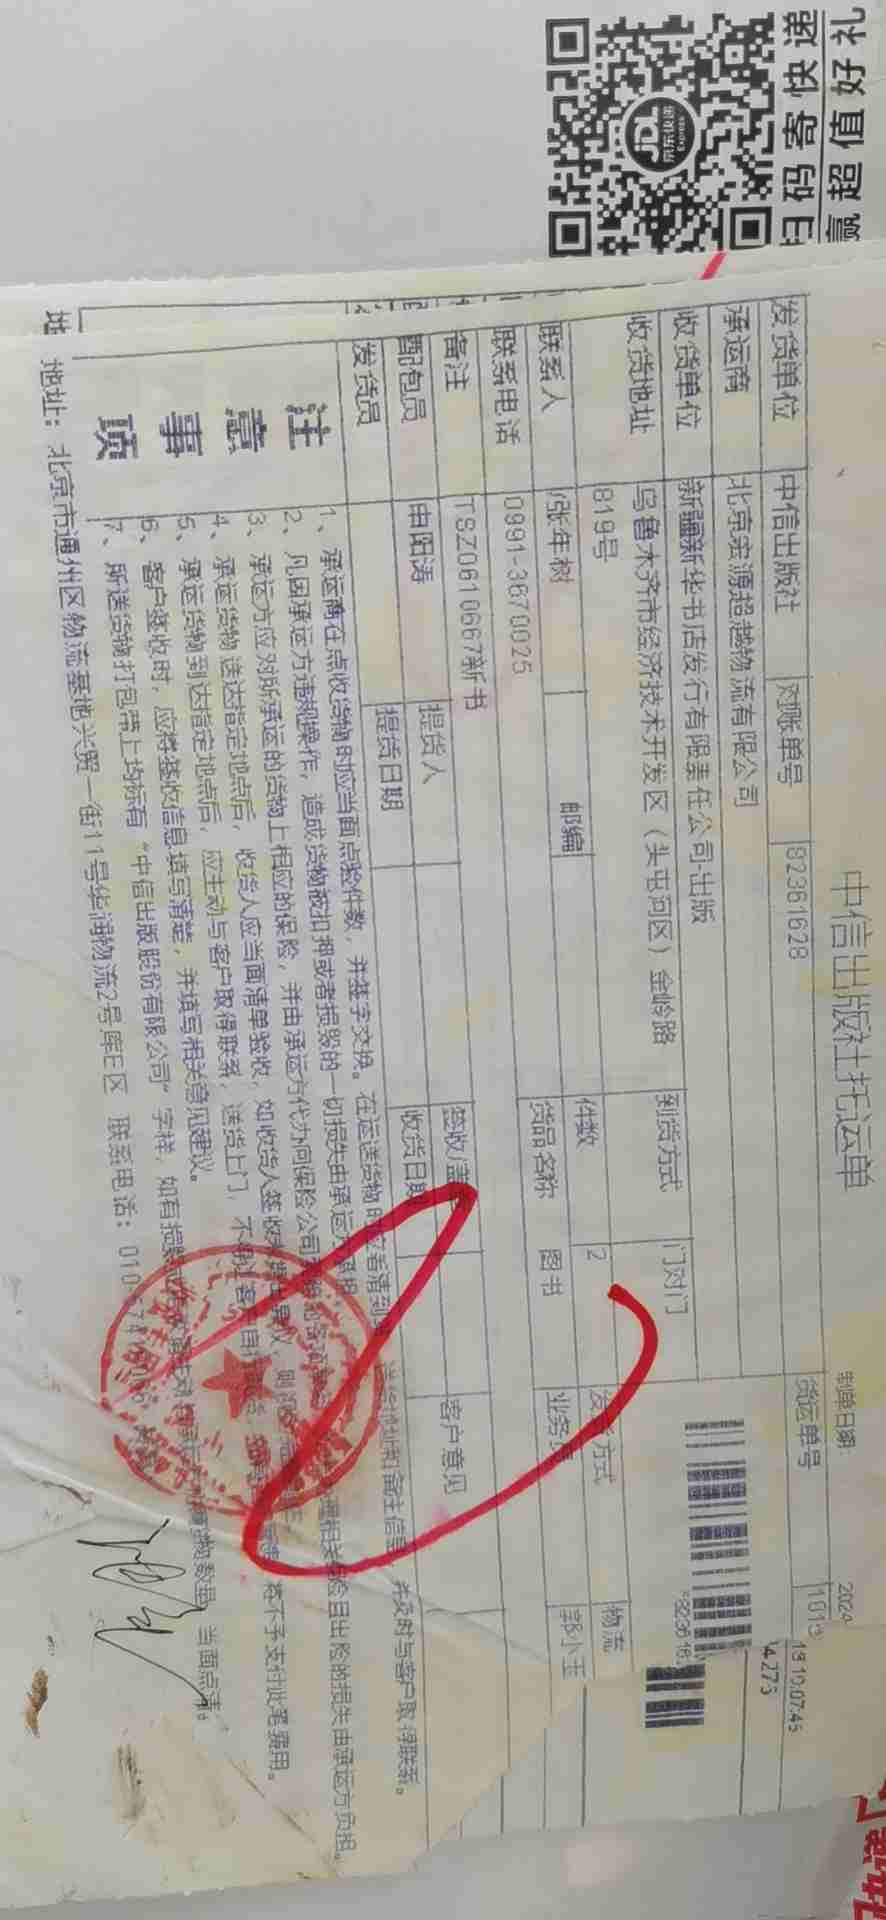 扫码寄快递
赢超值好礼
JDL
京东快递
Express
中信出版社托运单
制单日期:
2024
发货单位
中信出版社
对账单号
82361628
货运单号
承运商
北京宏源超越物流有限公司
收货单位
新疆新华书店发行有限责任公司-出版
收货地址
乌鲁木齐市经济技术开发区（头屯河区）金岭路
819号
到货方式
门对门
联系人
张年树
邮编
件数
2
发货方式
物流
联系电话
0991-3670025
货品名称
图书
业务员
郭小玉
备注
TSZ0610667新书
配包员
申阳涛
提货人
签收/盖
客户意见
发货员
提货日期
收货日期
注意事项
1、承运商在点收货物时应当面点验件数，并签字交换。在运送货物时应看清到
地址和备注信息，并及时与客户取得联系。
2、凡因承运方违规操作，造成货物被扣押或者损毁的一切损失由承运方承担。
3、承运方应对所承运的货物上相应的保险，并由承运方代办向保险公司
相关
出险的损失由承运方负担。
4、承运货物送达指定地点后，收货人应当面清单验收，如收货人签收
5、承运货物到达指定地点后，应主动与客户取得联系，送货上门，不
不予支付此笔费用。
6、客户签收时，应将签收信息填写清楚，并填写相关意见建议。
7、所送货物打包带上均标有“中信出版股份有限公司”字样，如有损
数量，当面点清。
地址：北京市通州区物流基地兴贸一街11号华润物流2号库E区 联系电话：010